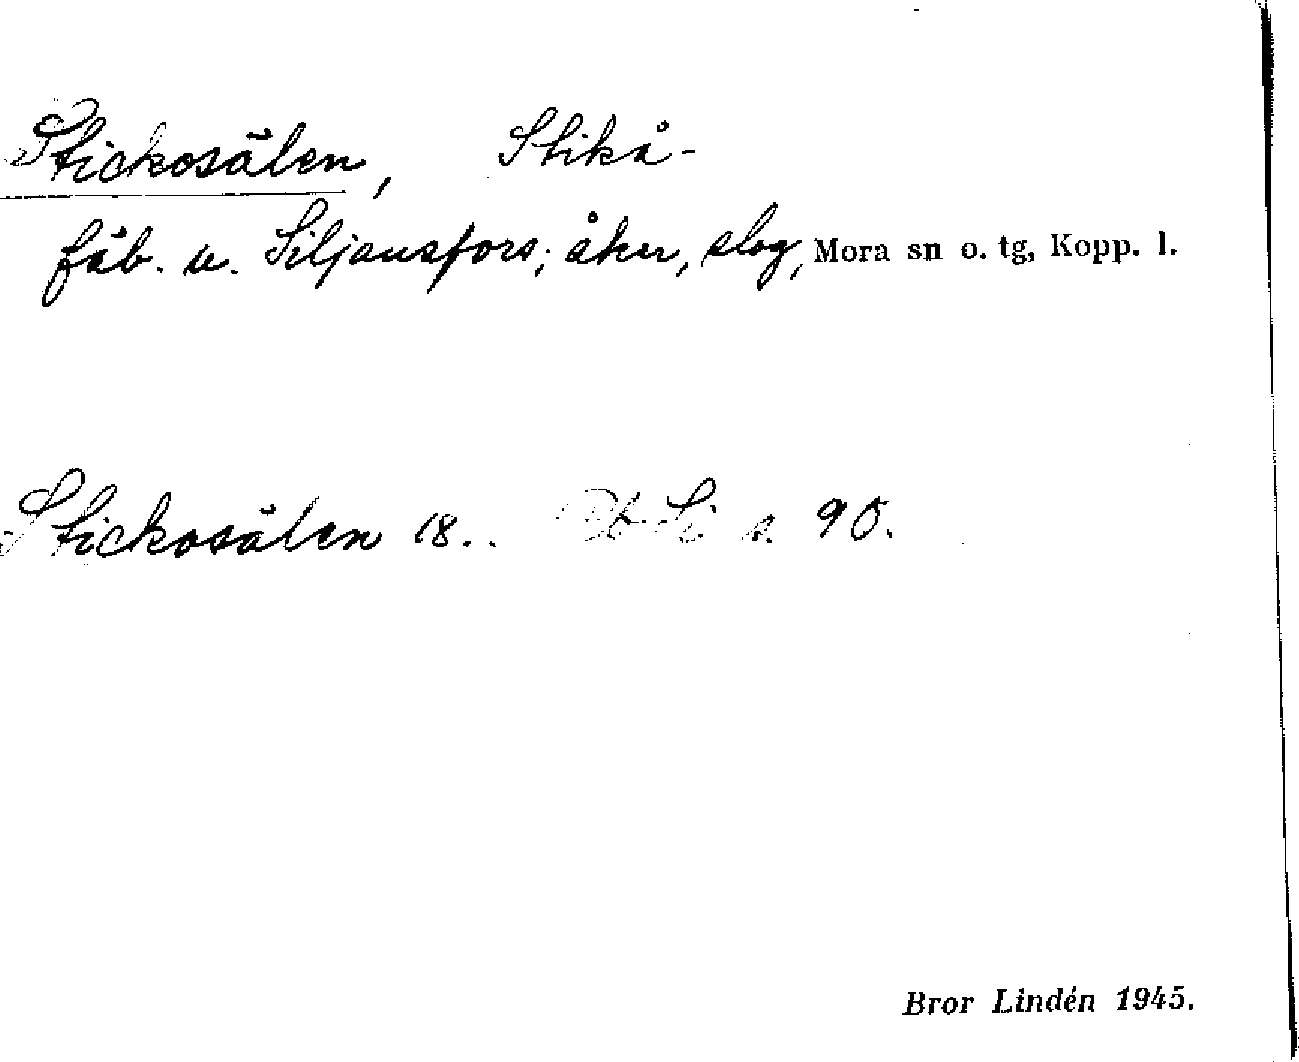 Stickosälen, Stikå-
fäb. u. Siljansfors; åker, slog, Mora sn o. tg, Kopp. l.
Stickosälen 18.. s. 90.
Bror Lindén 1945.